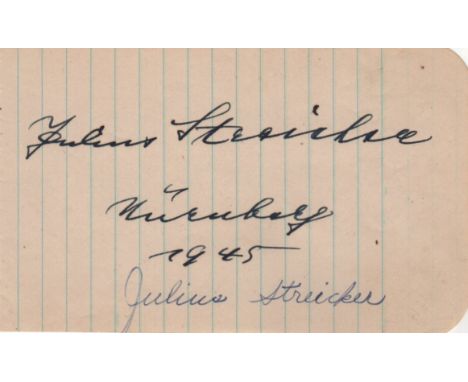 Julius Streicher
Nürnberg
1945
Julius Streicker